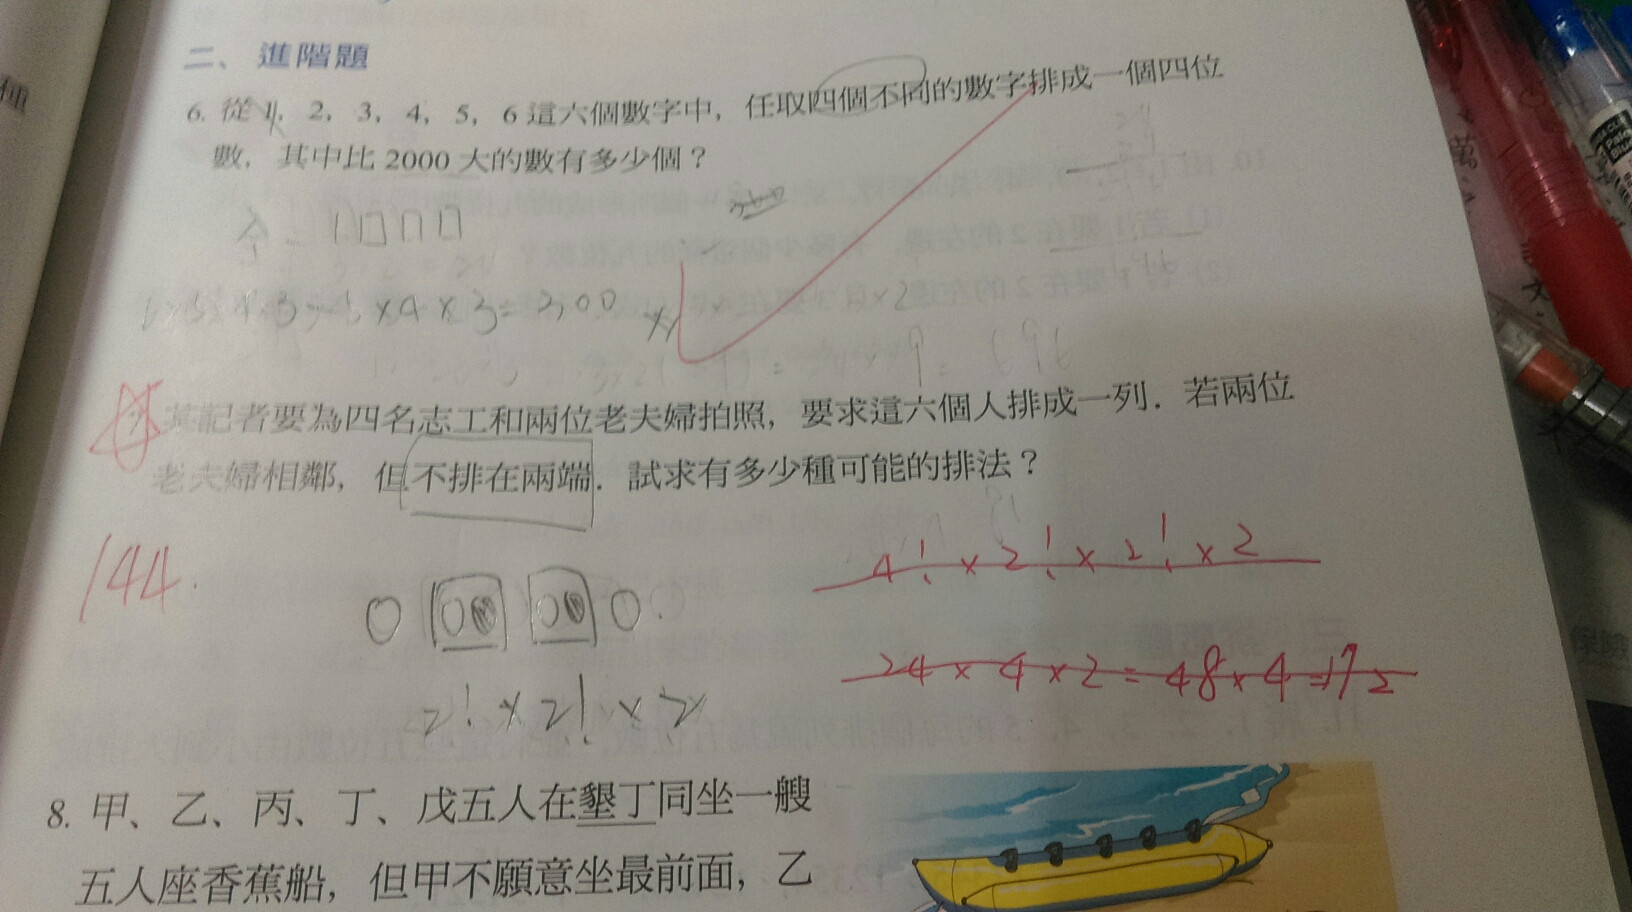 二、進階題
6. 從 1, 2, 3, 4, 5, 6 這六個數字中，任取四個不同的數字排成一個四位
數，其中比 2000 大的數有多少個？
1□□□
6×5×4×3-5×4×3=300
某記者要為四名志工和兩位老夫婦拍照，要求這六個人排成一列．若兩位
老夫婦相鄰，但不排在兩端．試求有多少種可能的排法？
144.
4!×2!×2!×2
24×4×2=48×4=172
2!×2!×2
8. 甲、乙、丙、丁、戊五人在墾丁同坐一艘
五人座香蕉船，但甲不願意坐最前面，乙